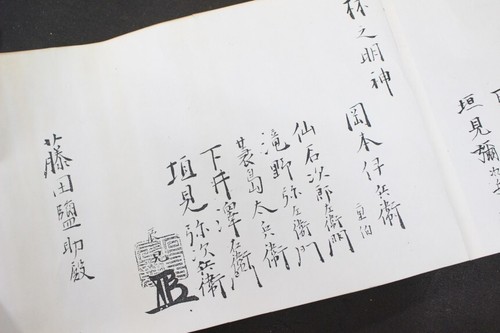 林之明神
岡本仔兵衛
重伯
仙石次郎左衛門
滝野弥左衛門
蓑島太兵衛
下井澤右衛門
垣見弥次兵衛
藤田鹽助殿
垣見